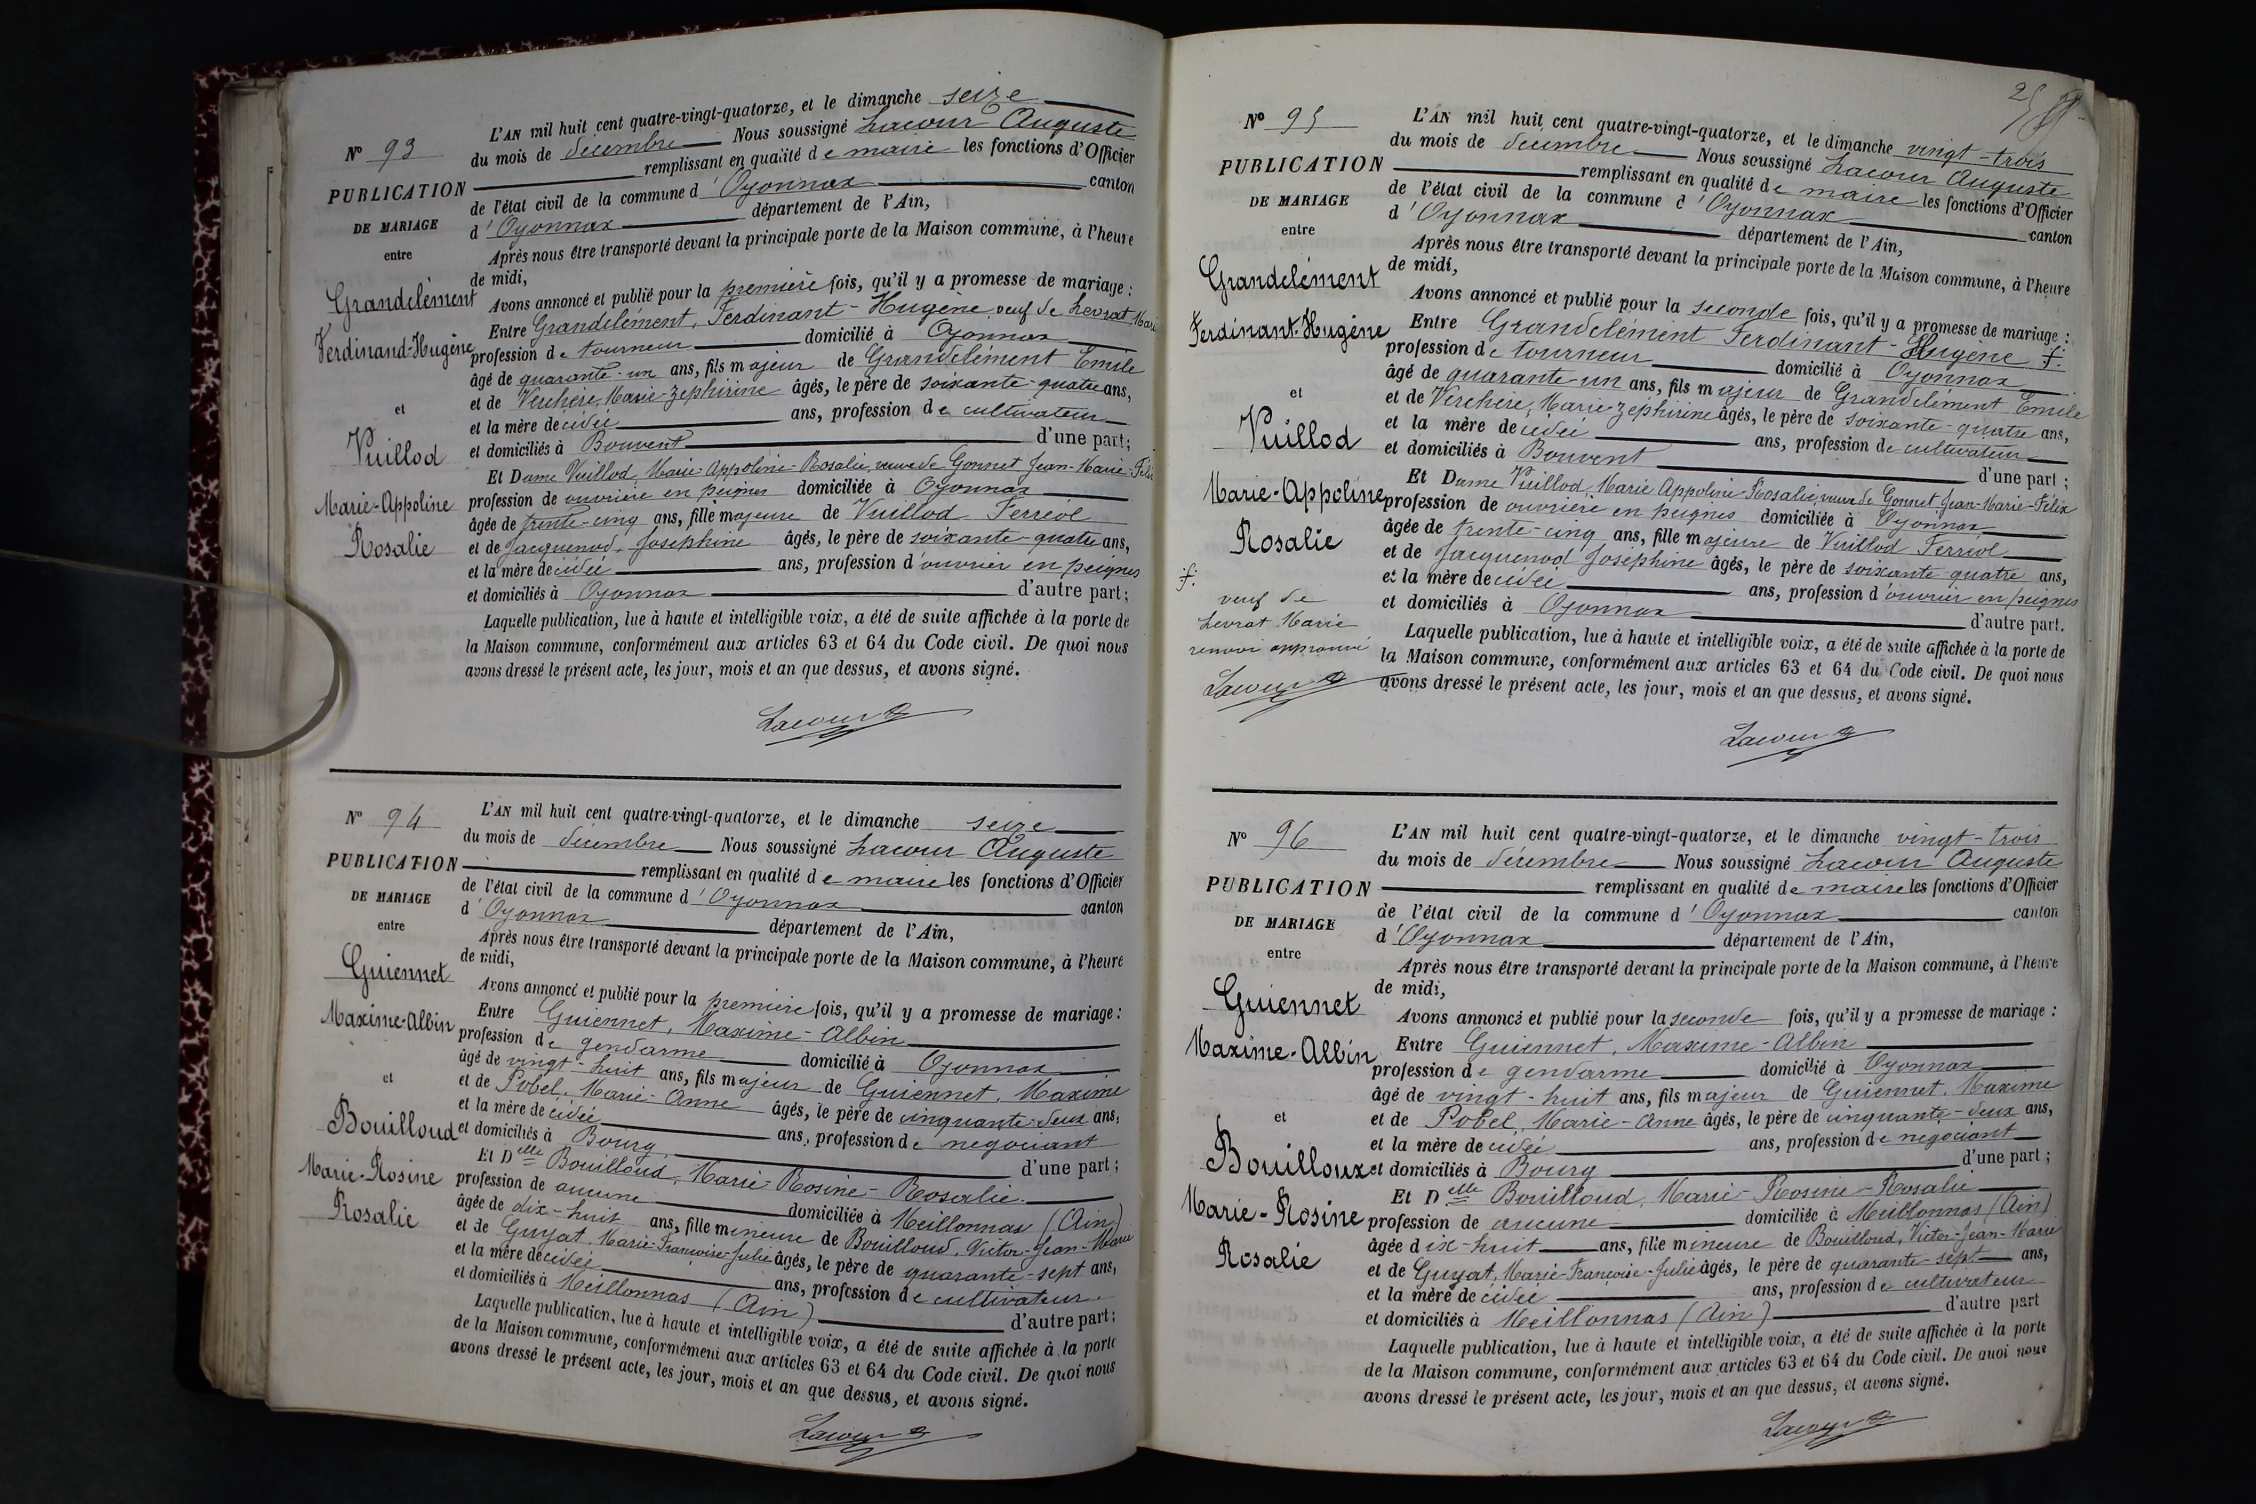 L'AN mil huit cent quatre-vingt-quatorze, et le dimanche seize
Nº 93
du mois de décembre Nous soussigné Lacour Auguste
remplissant en qualité de maire les fonctions d'Officier
PUBLICATION
de l'état civil de la commune d'Oyonnax canton
DE MARIAGE
d'Oyonnax département de l'Ain,
entre
Après nous être transporté devant la principale porte de la Maison commune, à l'heure
de midi,
Grandclément
Avons annoncé et publié pour la première fois, qu'il y a promesse de mariage :
Ferdinand-Hugène
Entre Grandclément, Ferdinant-Hugène, veuf de Levrat Marie
profession de tourneur domicilié à Oyonnax
âgé de quarante-un ans, fils majeur de Grandclément Emile
et
et de Verchère, Marie-Zéphirine âgés, le père de soixante-quatre ans,
et la mère décédée ans, profession de cultivateur
Vuillod
et domiciliés à Bouvent d'une part;
Et Dame Vuillod, Marie-Appoline-Rosalie, veuve de Gonnet Jean-Marie-Félix
Marie-Appoline
profession de ouvrière en peignes domiciliée à Oyonnax
âgée de trente-cinq ans, fille majeure de Vuillod Ferréol
Rosalie
et de Jacquenod, Joséphine âgés, le père de soixante-quatre ans,
et la mère décédée ans, profession d'ouvrier en peignes
et domiciliés à Oyonnax d'autre part;
Laquelle publication, lue à haute et intelligible voix, a été de suite affichée à la porte de
la Maison commune, conformément aux articles 63 et 64 du Code civil. De quoi nous
avons dressé le présent acte, les jour, mois et an que dessus, et avons signé.
Lacour
L'AN mil huit cent quatre-vingt-quatorze, et le dimanche seize
Nº 94
du mois de décembre Nous soussigné Lacour Auguste
PUBLICATION
remplissant en qualité de maire les fonctions d'Officier
de l'état civil de la commune d'Oyonnax canton
DE MARIAGE
d'Oyonnax département de l'Ain,
entre
Après nous être transporté devant la principale porte de la Maison commune, à l'heure
de midi,
Guiennet
Avons annoncé et publié pour la première fois, qu'il y a promesse de mariage :
Maxime-Albin
Entre Guiennet, Maxime-Albin
profession de gendarme domicilié à Oyonnax
âgé de vingt-huit ans, fils majeur de Guiennet, Maxime
et
et de Pobel, Marie-Anne âgés, le père de cinquante-deux ans,
et la mère décédée ans, profession de négociant
Bouilloud
et domiciliés à Bourg d'une part;
Et Delle Bouilloud, Marie-Rosine-Rosalie
Marie-Rosine
profession de aucune domiciliée à Meillonnas (Ain)
Rosalie
âgée de dix-huit ans, fille mineure de Bouilloud, Victor-Jean-Marie
et de Guyat, Marie-Françoise-Julie âgés, le père de quarante-sept ans,
et la mère décédée ans, profession de cultivateur
et domiciliés à Meillonnas (Ain) d'autre part;
Laquelle publication, lue à haute et intelligible voix, a été de suite affichée à la porte
de la Maison commune, conformément aux articles 63 et 64 du Code civil. De quoi nous
avons dressé le présent acte, les jour, mois et an que dessus, et avons signé.
Lacour
25
L'AN mil huit cent quatre-vingt-quatorze, et le dimanche vingt-trois
Nº 95
du mois de décembre Nous soussigné Lacour Auguste
PUBLICATION
remplissant en qualité de maire les fonctions d'Officier
de l'état civil de la commune d'Oyonnax canton
DE MARIAGE
d'Oyonnax département de l'Ain,
entre
Après nous être transporté devant la principale porte de la Maison commune, à l'heure
de midi,
Grandclément
Avons annoncé et publié pour la seconde fois, qu'il y a promesse de mariage :
Ferdinant-Hugène
Entre Grandclément Ferdinant-Hugène
profession de tourneur domicilié à Oyonnax
âgé de quarante-un ans, fils majeur de Grandclément Emile
et
et de Verchère, Marie-Zéphirine âgés, le père de soixante-quatre ans,
et la mère décédée ans, profession de cultivateur
Vuillod
et domiciliés à Bouvent d'une part;
Et Dame Vuillod, Marie Appoline-Rosalie, veuve de Gonnet Jean-Marie-Félix
Marie-Appoline
profession de ouvrière en peignes domiciliée à Oyonnax
âgée de trente-cinq ans, fille majeure de Vuillod Ferréol
Rosalie
et de Jacquenod Joséphine âgés, le père de soixante-quatre ans,
et la mère décédée ans, profession d'ouvrier en peignes
et domiciliés à Oyonnax d'autre part.
veuf de
Levrat Marie
renvoi approuvé
Lacour
Laquelle publication, lue à haute et intelligible voix, a été de suite affichée à la porte de
la Maison commune, conformément aux articles 63 et 64 du Code civil. De quoi nous
avons dressé le présent acte, les jour, mois et an que dessus, et avons signé.
Lacour
L'AN mil huit cent quatre-vingt-quatorze, et le dimanche vingt-trois
Nº 96
du mois de décembre Nous soussigné Lacour Auguste
PUBLICATION
remplissant en qualité de maire les fonctions d'Officier
de l'état civil de la commune d'Oyonnax canton
DE MARIAGE
d'Oyonnax département de l'Ain,
entre
Après nous être transporté devant la principale porte de la Maison commune, à l'heure
de midi,
Guiennet
Avons annoncé et publié pour la seconde fois, qu'il y a promesse de mariage :
Maxime-Albin
Entre Guiennet, Maxime-Albin
profession de gendarme domicilié à Oyonnax
âgé de vingt-huit ans, fils majeur de Guiennet, Maxime
et
et de Pobel, Marie-Anne âgés, le père de cinquante-deux ans,
et la mère décédée ans, profession de négociant
Bouilloux
et domiciliés à Bourg d'une part;
Et Delle Bouilloud, Marie-Rosine-Rosalie
Marie-Rosine
profession de aucune domiciliée à Meillonnas (Ain)
âgée dix-huit ans, fille mineure de Bouilloud, Victor-Jean-Marie
Rosalie
et de Guyat, Marie-Françoise-Julie âgés, le père de quarante-sept ans,
et la mère décédée ans, profession de cultivateur
et domiciliés à Meillonnas (Ain) d'autre part
Laquelle publication, lue à haute et intelligible voix, a été de suite affichée à la porte
de la Maison commune, conformément aux articles 63 et 64 du Code civil. De quoi nous
avons dressé le présent acte, les jour, mois et an que dessus, et avons signé.
Lacour